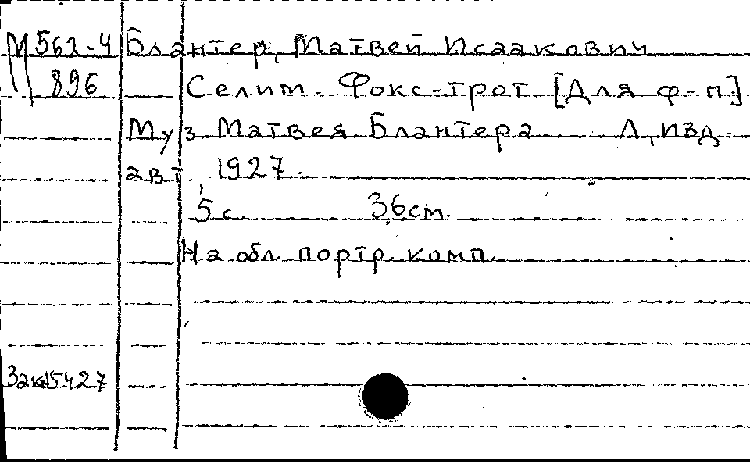 М 562-4 Блантер, Матвей Исаакович
896 Селит. Фокс-трот [Для ф-п]
Муз. Матвея Блантера Л, изд.
авт, 1927.
5 с. 36 см.
На обл. портр. комп.
Зак. 5427